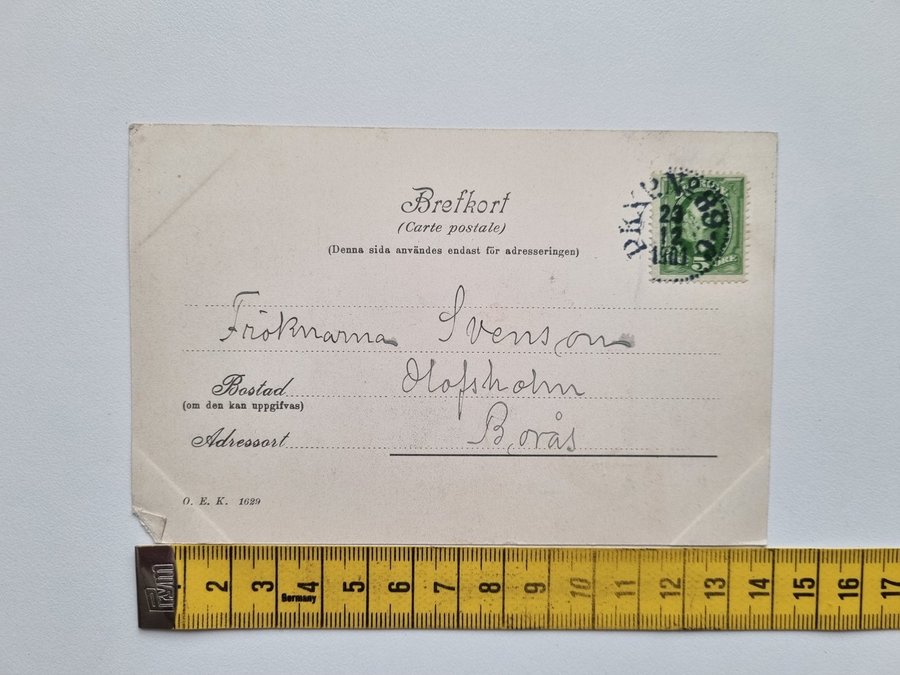 Brefkort
(Carte postale)
(Denna sida användes endast för adresseringen)
PKXP. No 89
23
12
ÖRE
Fröknarna Svenson
Bostad Olofsholm
(om den kan uppgifvas)
Adressort Borås
O. E. K. 1629
Prym
2 3 4 5 6 7 8 9 10 11 12 13 14 15 16 17
Germany